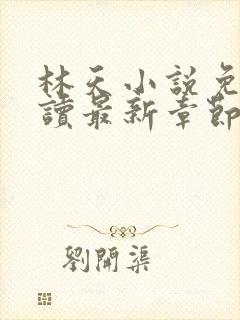 林天小説免
讀最新章節
劉開渠